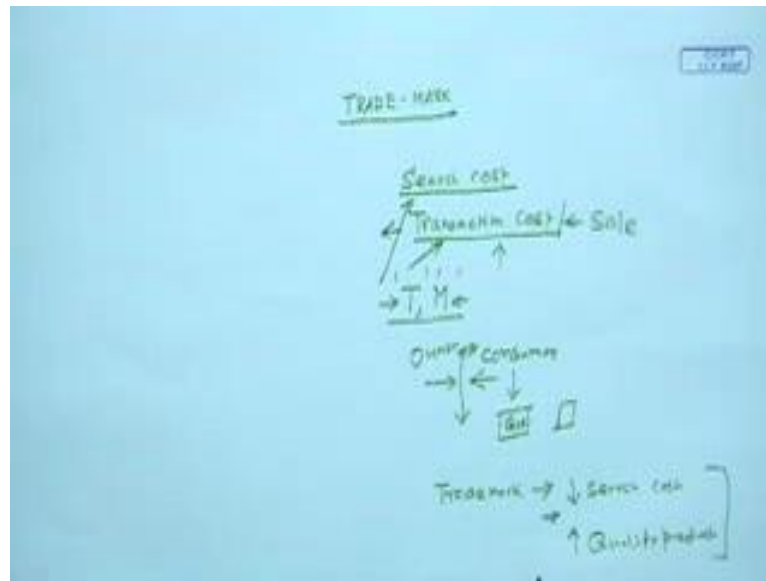 TRADE-MARK
Search cost
← Transaction cost ← Sale
↑
→ T, M ←
Owner consumer
→ ← ↓
Trademark → ↓ Search cost
→
↑ Quality products